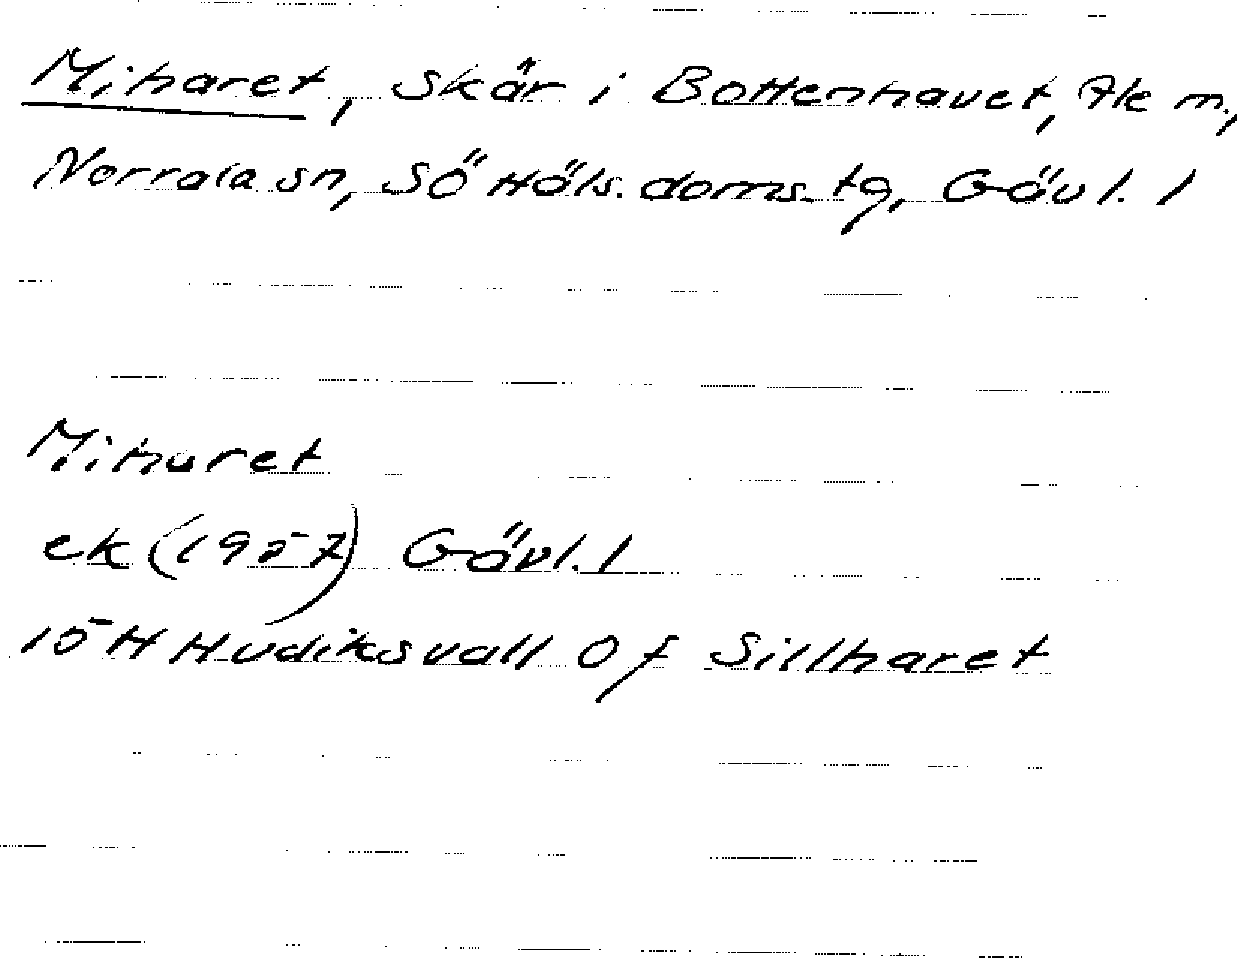 Miharet, skär i Bottenhavet, Ale m.,
Norrala sn, SÖ Häls. doms. tg, Gävl. l
Miharet
ek (1957) Gävl. l
15 H Hudiksvall Öf Sillharet